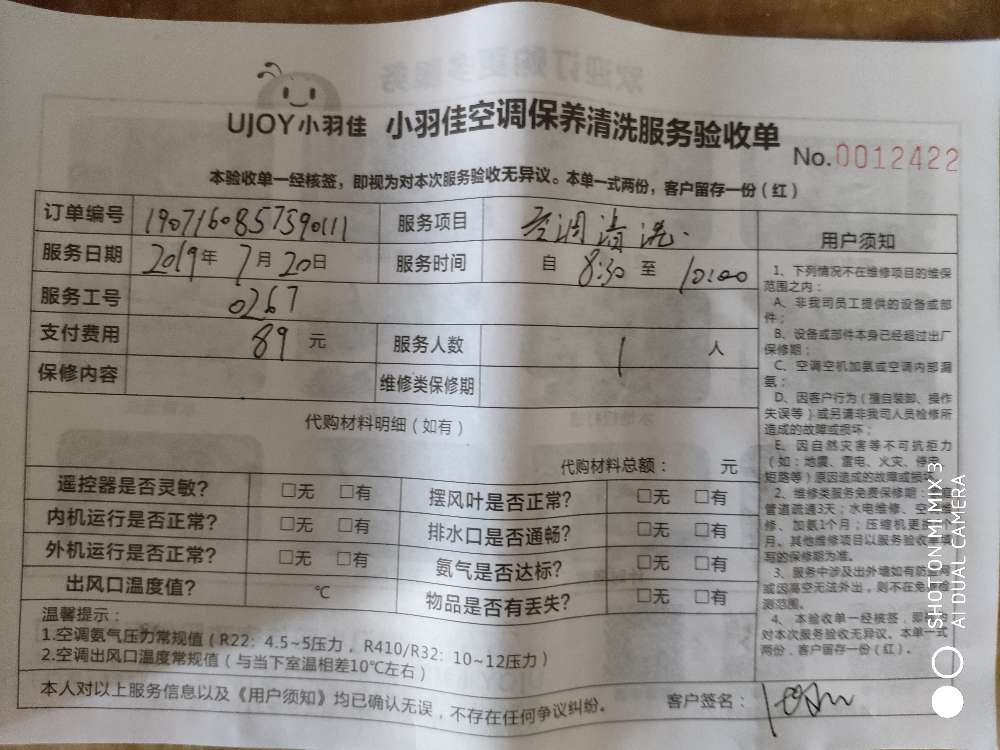 UJOY小羽佳 小羽佳空调保养清洗服务验收单
No.0012422
本验收单一经核签，即视为对本次服务验收无异议。本单一式两份，客户留存一份（红）
订单编号 1907160857390111 服务项目 空调清洗.
服务日期 2019年7月20日 服务时间 自8:30至10:00
服务工号 0267
支付费用 89元 服务人数 1人
保修内容 维修类保修期
代购材料明细（如有）
代购材料总额： 元
遥控器是否灵敏? □无 □有 摆风叶是否正常? □无 □有
内机运行是否正常? □无 □有 排水口是否通畅? □无 □有
外机运行是否正常? □无 □有 氨气是否达标? □无 □有
出风口温度值? ℃ 物品是否有丢失? □无 □有
温馨提示：
1.空调氨气压力常规值（R22：4.5~5压力，R410/R32：10~12压力）
2.空调出风口温度常规值（与当下室温相差10℃左右）
本人对以上服务信息以及《用户须知》均已确认无误，不存在任何争议纠纷。 客户签名：
用户须知
1、下列情况不在维修项目的维保
范围之内：
A、非我司员工提供的设备或部
件；
B、设备或部件本身已经超过出厂
保修期；
C、空调空机加氨或空调内部漏
氨；
D、因客户行为（擅自装卸、操作
失误等）或另请非我司人员检修所
造成的故障或损坏；
E、因自然灾害等不可抗拒力
（如：地震、雷电、火灾、停电、
短路等）原因造成的故障或损
2、维修类服务免费保修期：
管道疏通3天；水电维修、空
修、加氨1个月；压缩机更
月。其他维修项目以服务验收
写的保修期为准。
3、服务中涉及出外墙如有防
或因高空无法外出，则不在免
测范围。
4、本验收单一经核签，即
对本次服务验收无异议。本单一式
两份，客户留存一份（红）。
SHOT ON MI MIX 3
AI DUAL CAMERA